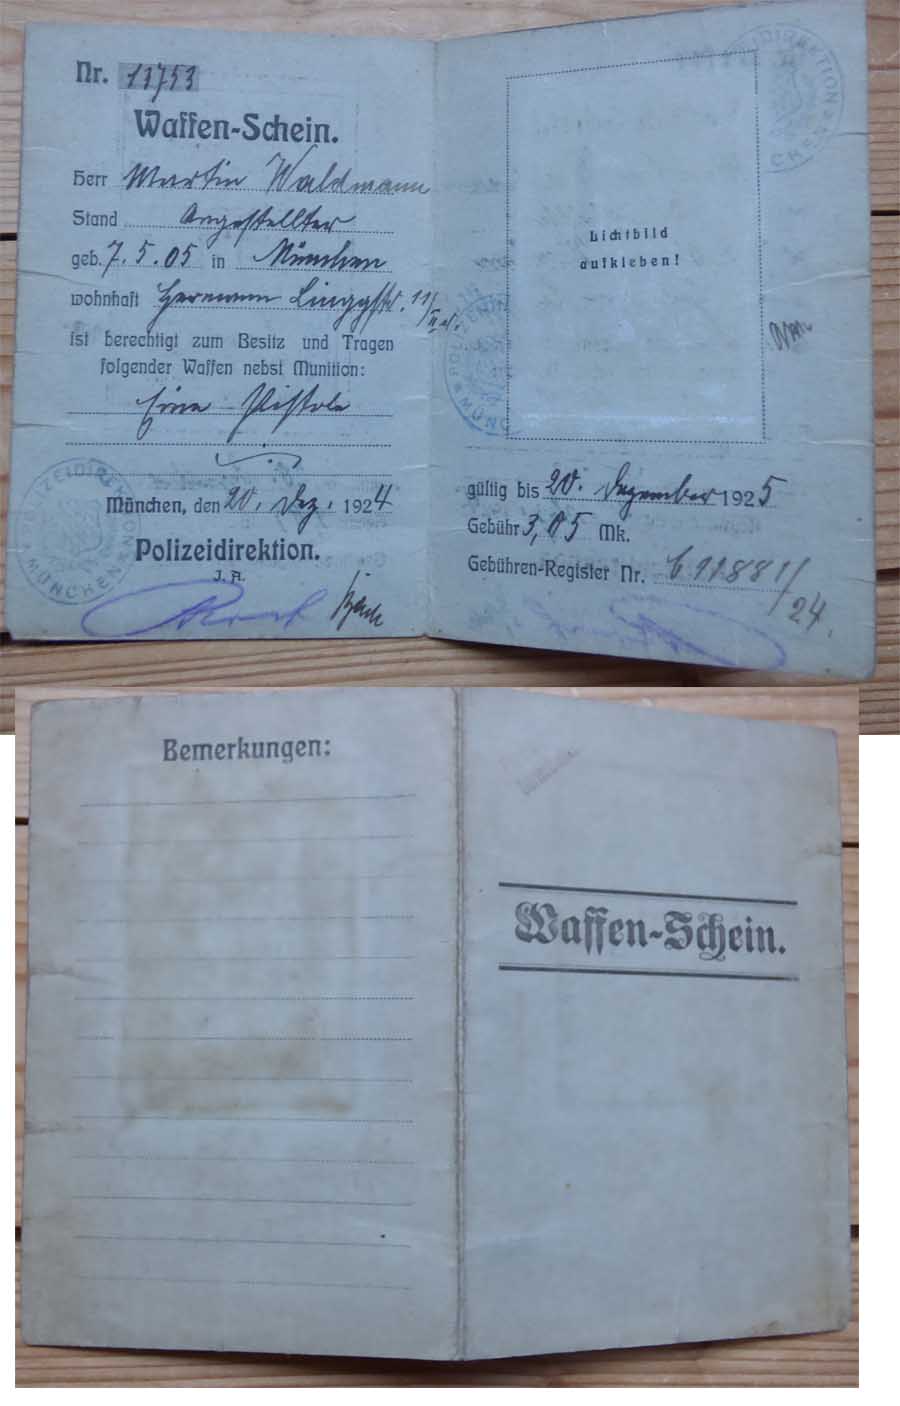 Nr. 13753
Waffen-Schein.
Herr Martin Waldmann
Stand Angestellter
geb. 7. 5. 05 in München
wohnhaft Hermann Linggstr. 11/II r.
ist berechtigt zum Besitz und Tragen
folgender Waffen nebst Munition:
Eine Pistole
München, den 20. Dez. 1924
Polizeidirektion.
J. A.
POLIZEIDIREKTION MÜNCHEN
POLIZEIDIREKTION MÜNCHEN
Lichtbild
aufkleben!
POLIZEIDIREKTION MÜNCHEN
gültig bis 20. Dezember 1925
Gebühr 3,05 Mk.
Gebühren-Register Nr. C 11881/24.
Bemerkungen:
Waffen-Schein.